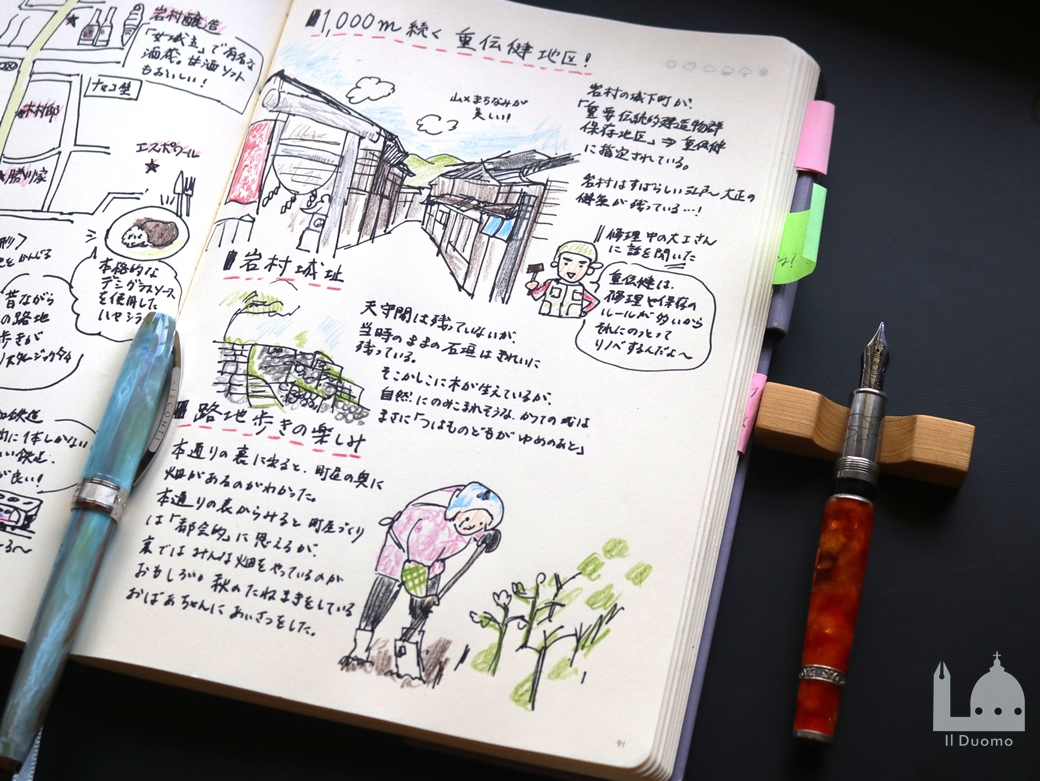 岩村醸造
「女城主」で有名な
酒蔵。甘酒ソフト
もおいしい！
木村邸
勝川家
エスポワール
本格的な
デミグラスソース
を使用した
ハヤシ
昔ながら
の路地
歩きが
1,000m続く 重伝健地区！
山×まちなみが
美しい！
岩村の城下町が、
「重要伝統的建造物群
保存地区」⇒重伝健
に指定されている。
岩村はすばらしい江戸～大正の
街並が残っている…！
修理中の大工さん
に話を聞いた
重伝健は、
修理や保存の
ルールが多いから
それにのっとって
リノベするんだよ～
岩村城址
天守閣は残っていないが、
当時のままの石垣はきれいに
残っている。
そこかしこに木が生えているが、
自然にのみこまれそうな、かつての城は
まさに「つはものどもが ゆめのあと」
路地歩きの楽しみ
本通りの裏に出ると、町屋の奥に
畑があるのがわかった。
本通りの表からみると町屋づくり
は「都会的」に思えるが、
裏ではみんな畑をやっているのが
おもしろい。秋のたねまきをしている
おばあちゃんにあいさつをした。
91
VISCONTI
Il Duomo